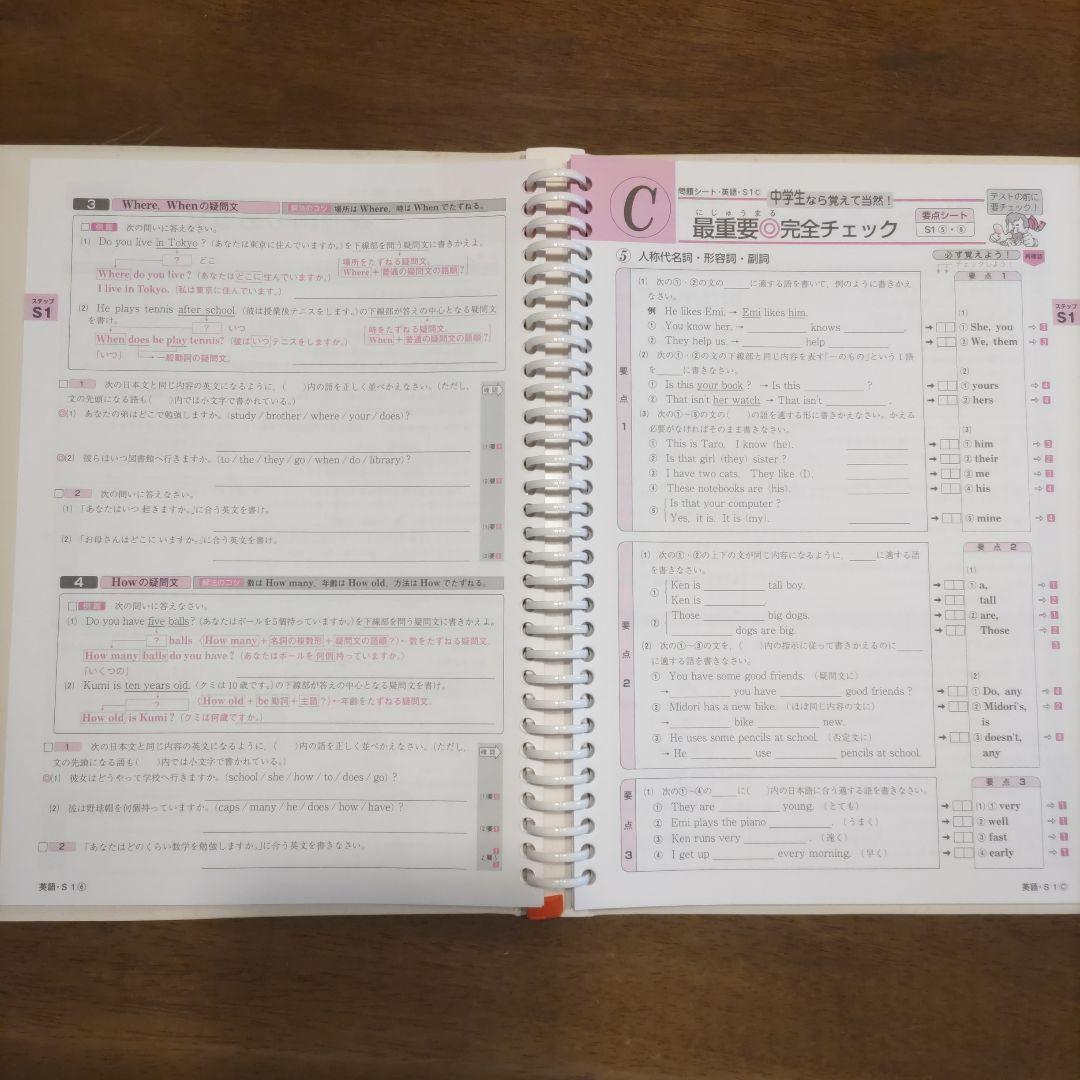 3 Where, Whenの疑問文 解法のコツ 場所はWhere, 時はWhenでたずねる。
例題 次の問いに答えなさい。
(1) Do you live in Tokyo?（あなたは東京に住んでいますか。）を下線部を問う疑問文に書きかえよ。
? どこ
場所をたずねる疑問文。
Where do you live?（あなたはどこに住んでいますか。） Where+普通の疑問文の語順?
I live in Tokyo.（私は東京に住んでいます。）
ステップ
S1
(2) He plays tennis after school.（彼は授業後テニスをします。）の下線部が答えの中心となる疑問文
を書け。
? いつ
時をたずねる疑問文。
When does he play tennis?（彼はいつテニスをしますか。） When+普通の疑問文の語順?
「いつ」 一般動詞の疑問文。
1 次の日本文と同じ内容の英文になるように，（ ）内の語を正しく並べかえなさい。（ただし，
文の先頭になる語も（ ）内では小文字で書かれている。）
確認
◎(1) あなたの弟はどこで勉強しますか。(study / brother / where / your / does)?
◎(2) 彼らはいつ図書館へ行きますか。(to / the / they / go / when / do / library)?
2 次の問いに答えなさい。
(1) 「あなたはいつ 起きますか。」に合う英文を書け。
(2) 「お母さんはどこに いますか。」に合う英文を書け。
4 Howの疑問文 解法のコツ 数はHow many, 年齢はHow old, 方法はHowでたずねる。
例題 次の問いに答えなさい。
(1) Do you have five balls?（あなたはボールを5個持っていますか。）を下線部を問う疑問文に書きかえよ。
? balls〈How many+名詞の複数形+疑問文の語順?〉←数をたずねる疑問文。
How many balls do you have?（あなたはボールを何個持っていますか。）
「いくつの」
(2) Kumi is ten years old.（クミは10歳です。）の下線部が答えの中心となる疑問文を書け。
?〈How old+be動詞+主語?〉←年齢をたずねる疑問文。
How old is Kumi?（クミは何歳ですか。）
1 次の日本文と同じ内容の英文になるように，（ ）内の語を正しく並べかえなさい。（ただし，
文の先頭になる語も（ ）内では小文字で書かれている。）
確認
◎(1) 彼女はどうやって学校へ行きますか。(school / she / how / to / does / go)?
(2) 彼は野球帽を何個持っていますか。(caps / many / he / does / how / have)?
2 「あなたはどのくらい数学を勉強しますか。」に合う英文を書きなさい。
英語・S1⑥
C
問題シート・英語・S1Ⓒ 中学生なら覚えて当然！
にじゅうまる
最重要◎完全チェック
要点シート
S1⑤・⑥
テストの前に
要チェック！
⑤ 人称代名詞・形容詞・副詞
必ず覚えよう！
チェックしよう！
再確認
ステップ
S1
要点1
(1) 次の①・②の文の____に適する語を書いて，例のように書きかえ
なさい。
例 He likes Emi. → Emi likes him.
① You know her. → ____ knows ____.
② They help us. → ____ help ____.
(2) 次の①・②の文の下線部と同じ内容を表す「～のもの」という1語
を____に書きなさい。
① Is this your book? → Is this ____?
② That isn't her watch. → That isn't ____.
(3) 次の①～⑤の文の（ ）の語を適する形に書きかえなさい。かえる
必要がなければそのまま書きなさい。
① This is Taro. I know (he).
② Is that girl (they) sister?
③ I have two cats. They like (I).
④ These notebooks are (his).
⑤ Is that your computer?
Yes, it is. It is (my).
要点1
(1)
① She, you ⇨3
② We, them ⇨3
(2)
① yours ⇨4
② hers ⇨4
(3)
① him ⇨3
② their ⇨2
③ me ⇨3
④ his ⇨4
⑤ mine ⇨4
要点2
(1) 次の①・②の上下の文が同じ内容になるように，____に適する語
を書きなさい。
① Ken is ____ tall boy.
Ken is ____.
② Those ____ big dogs.
____ dogs are big.
(2) 次の①～③の文を，（ ）内の指示に従って書きかえるのに____
に適する語を書きなさい。
① You have some good friends.（疑問文に）
→ ____ you have ____ good friends?
② Midori has a new bike.（ほぼ同じ内容の文に）
→ ____ bike ____ new.
③ He uses some pencils at school.（否定文に）
→ He ____ use ____ pencils at school.
要点2
(1)
① a, ⇨1
tall ⇨2
② are, ⇨1
Those ⇨2
3
(2)
① Do, any ⇨4
② Midori's, ⇨2
is
③ doesn't, ⇨4
any
要点3
(1) 次の①～④の____に（ ）内の日本語に合う適する語を書きなさい。
① They are ____ young.（とても）
② Emi plays the piano ____.（うまく）
③ Ken runs very ____.（速く）
④ I get up ____ every morning.（早く）
要点3
(1) ① very ⇨1
② well ⇨1
③ fast ⇨1
④ early ⇨1
英語・S1Ⓒ